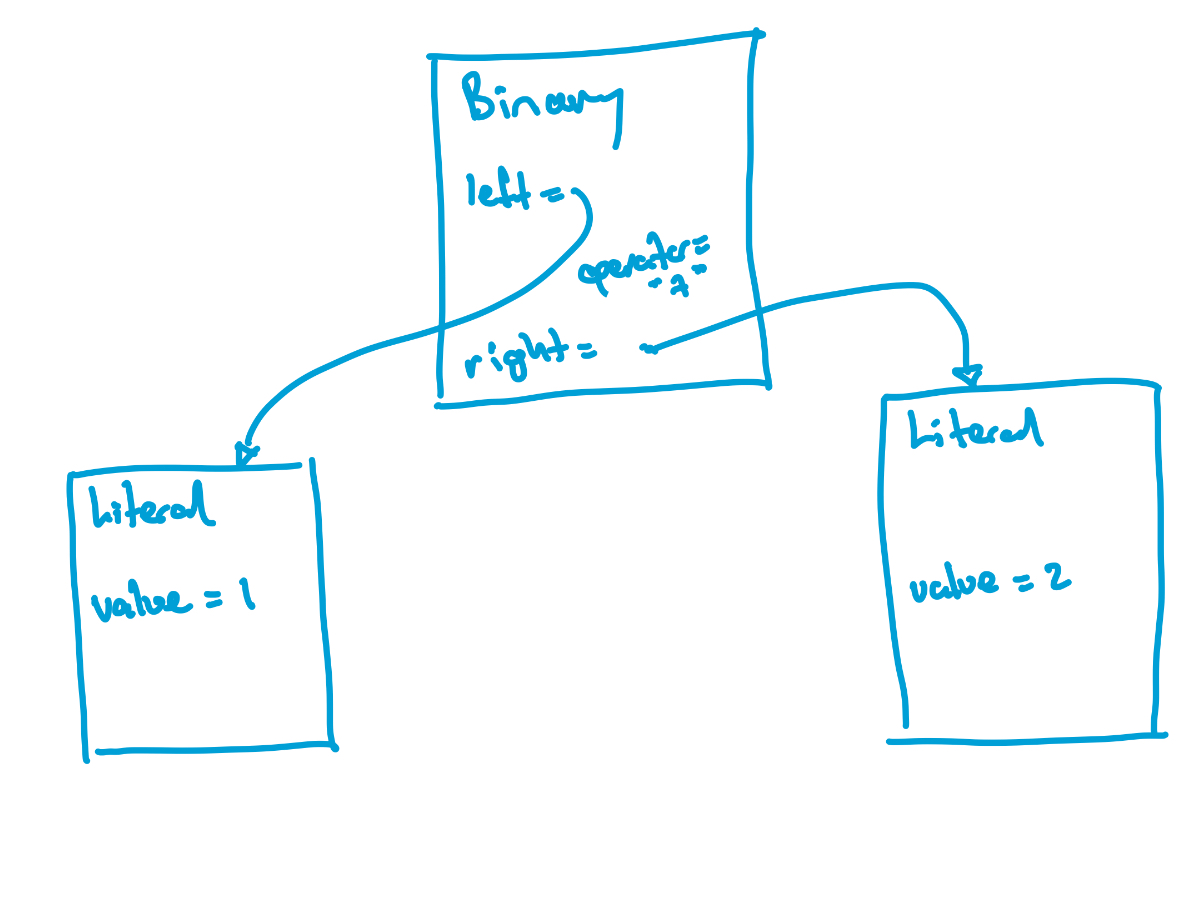 Binary
left =
operator =
right =
Literal
value = 1
Literal
value = 2